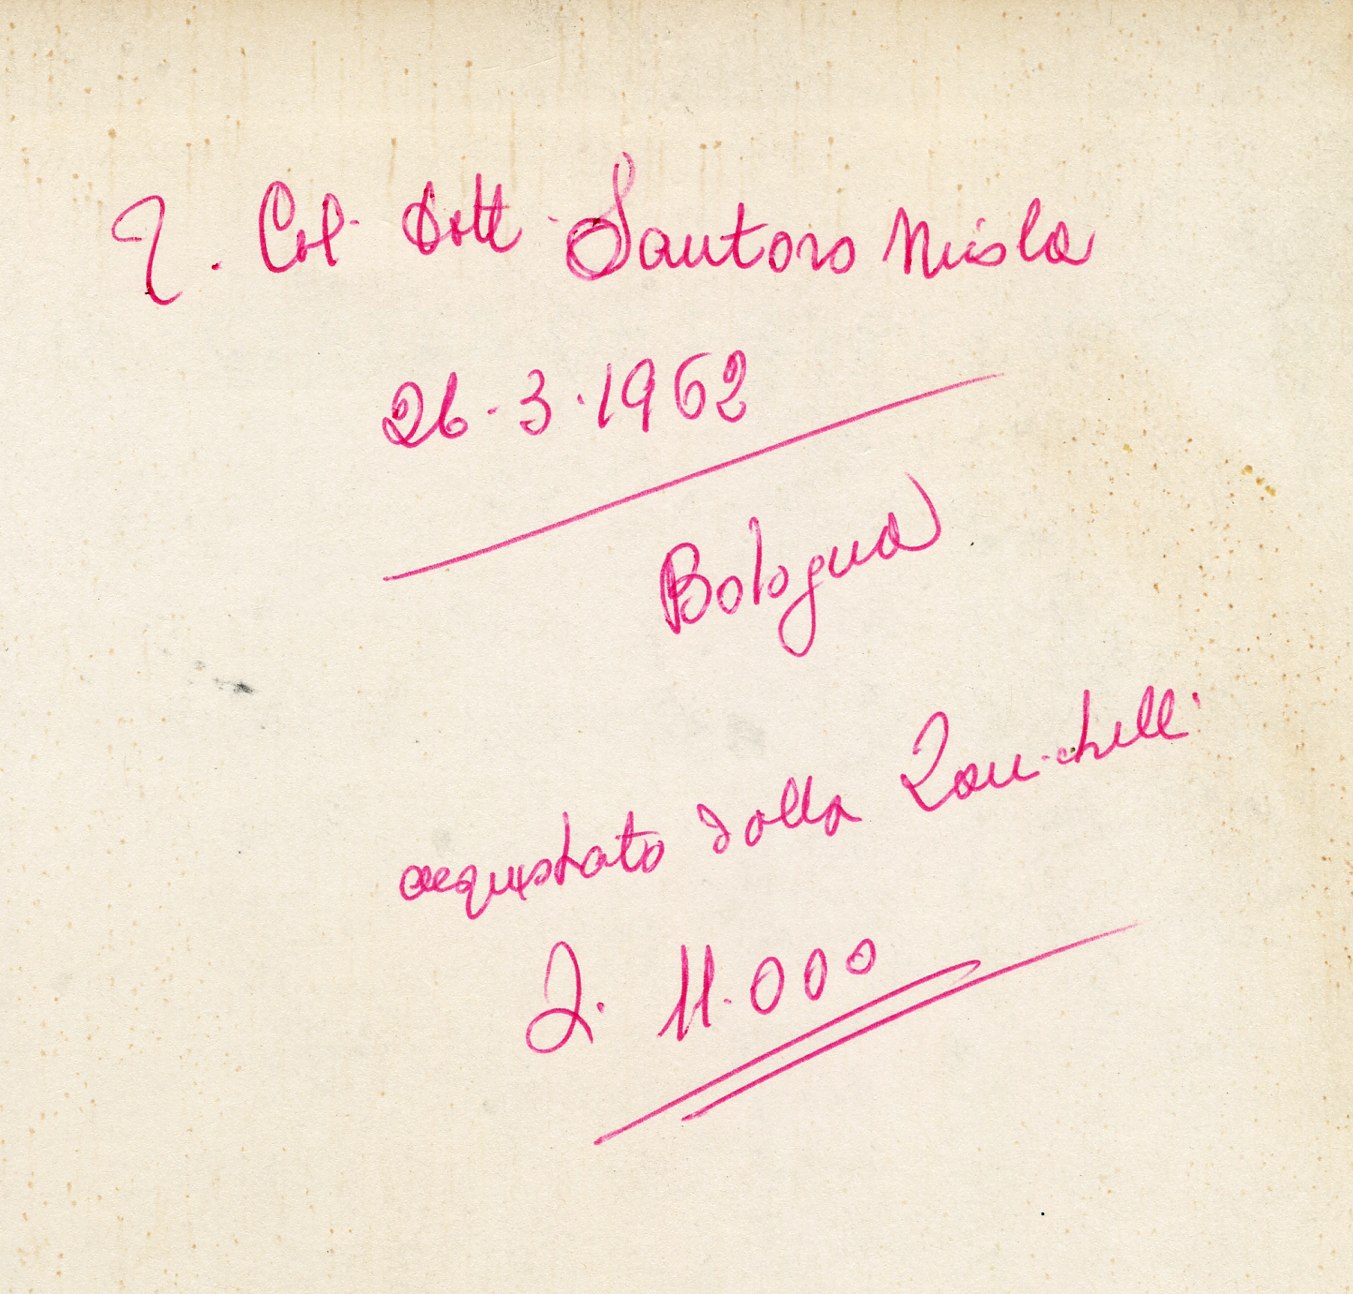 T. Col. Dott. Santoro Nicola
26.3.1962
Bologna
acquistato dalla Zanichelli
L. 11.000